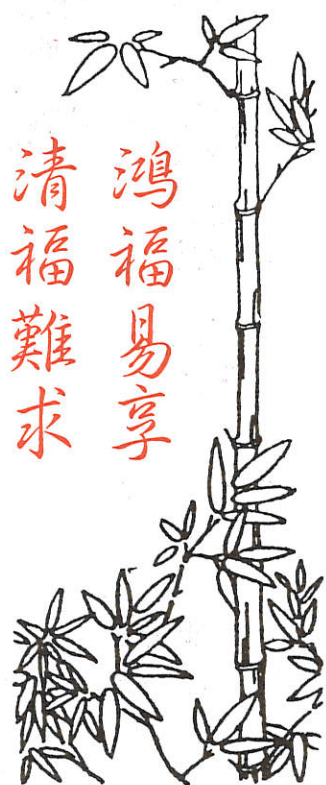 鴻福易享
清福難求